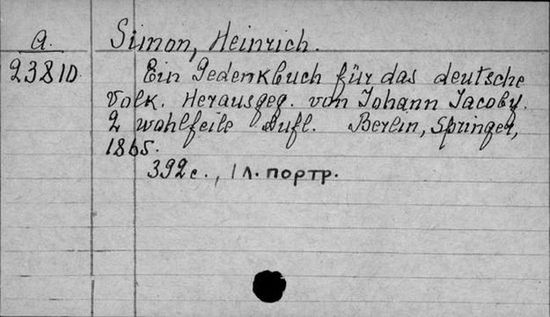 a. Simon, Heinrich.
23810 Ein Gedenkbuch für das deutsche
Volk. Herausgeg. von Johann Jacoby.
2 wohlfeile Aufl. Berlin, Springer,
1865.
392 с., 1 л. портр.